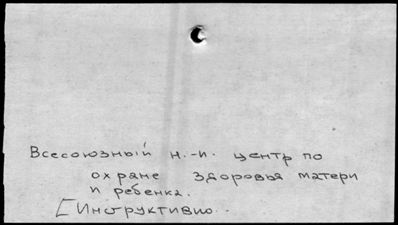 Всесоюзный н.-и. центр по
охране здоровья матери
и ребенка.
[Инструктивно..